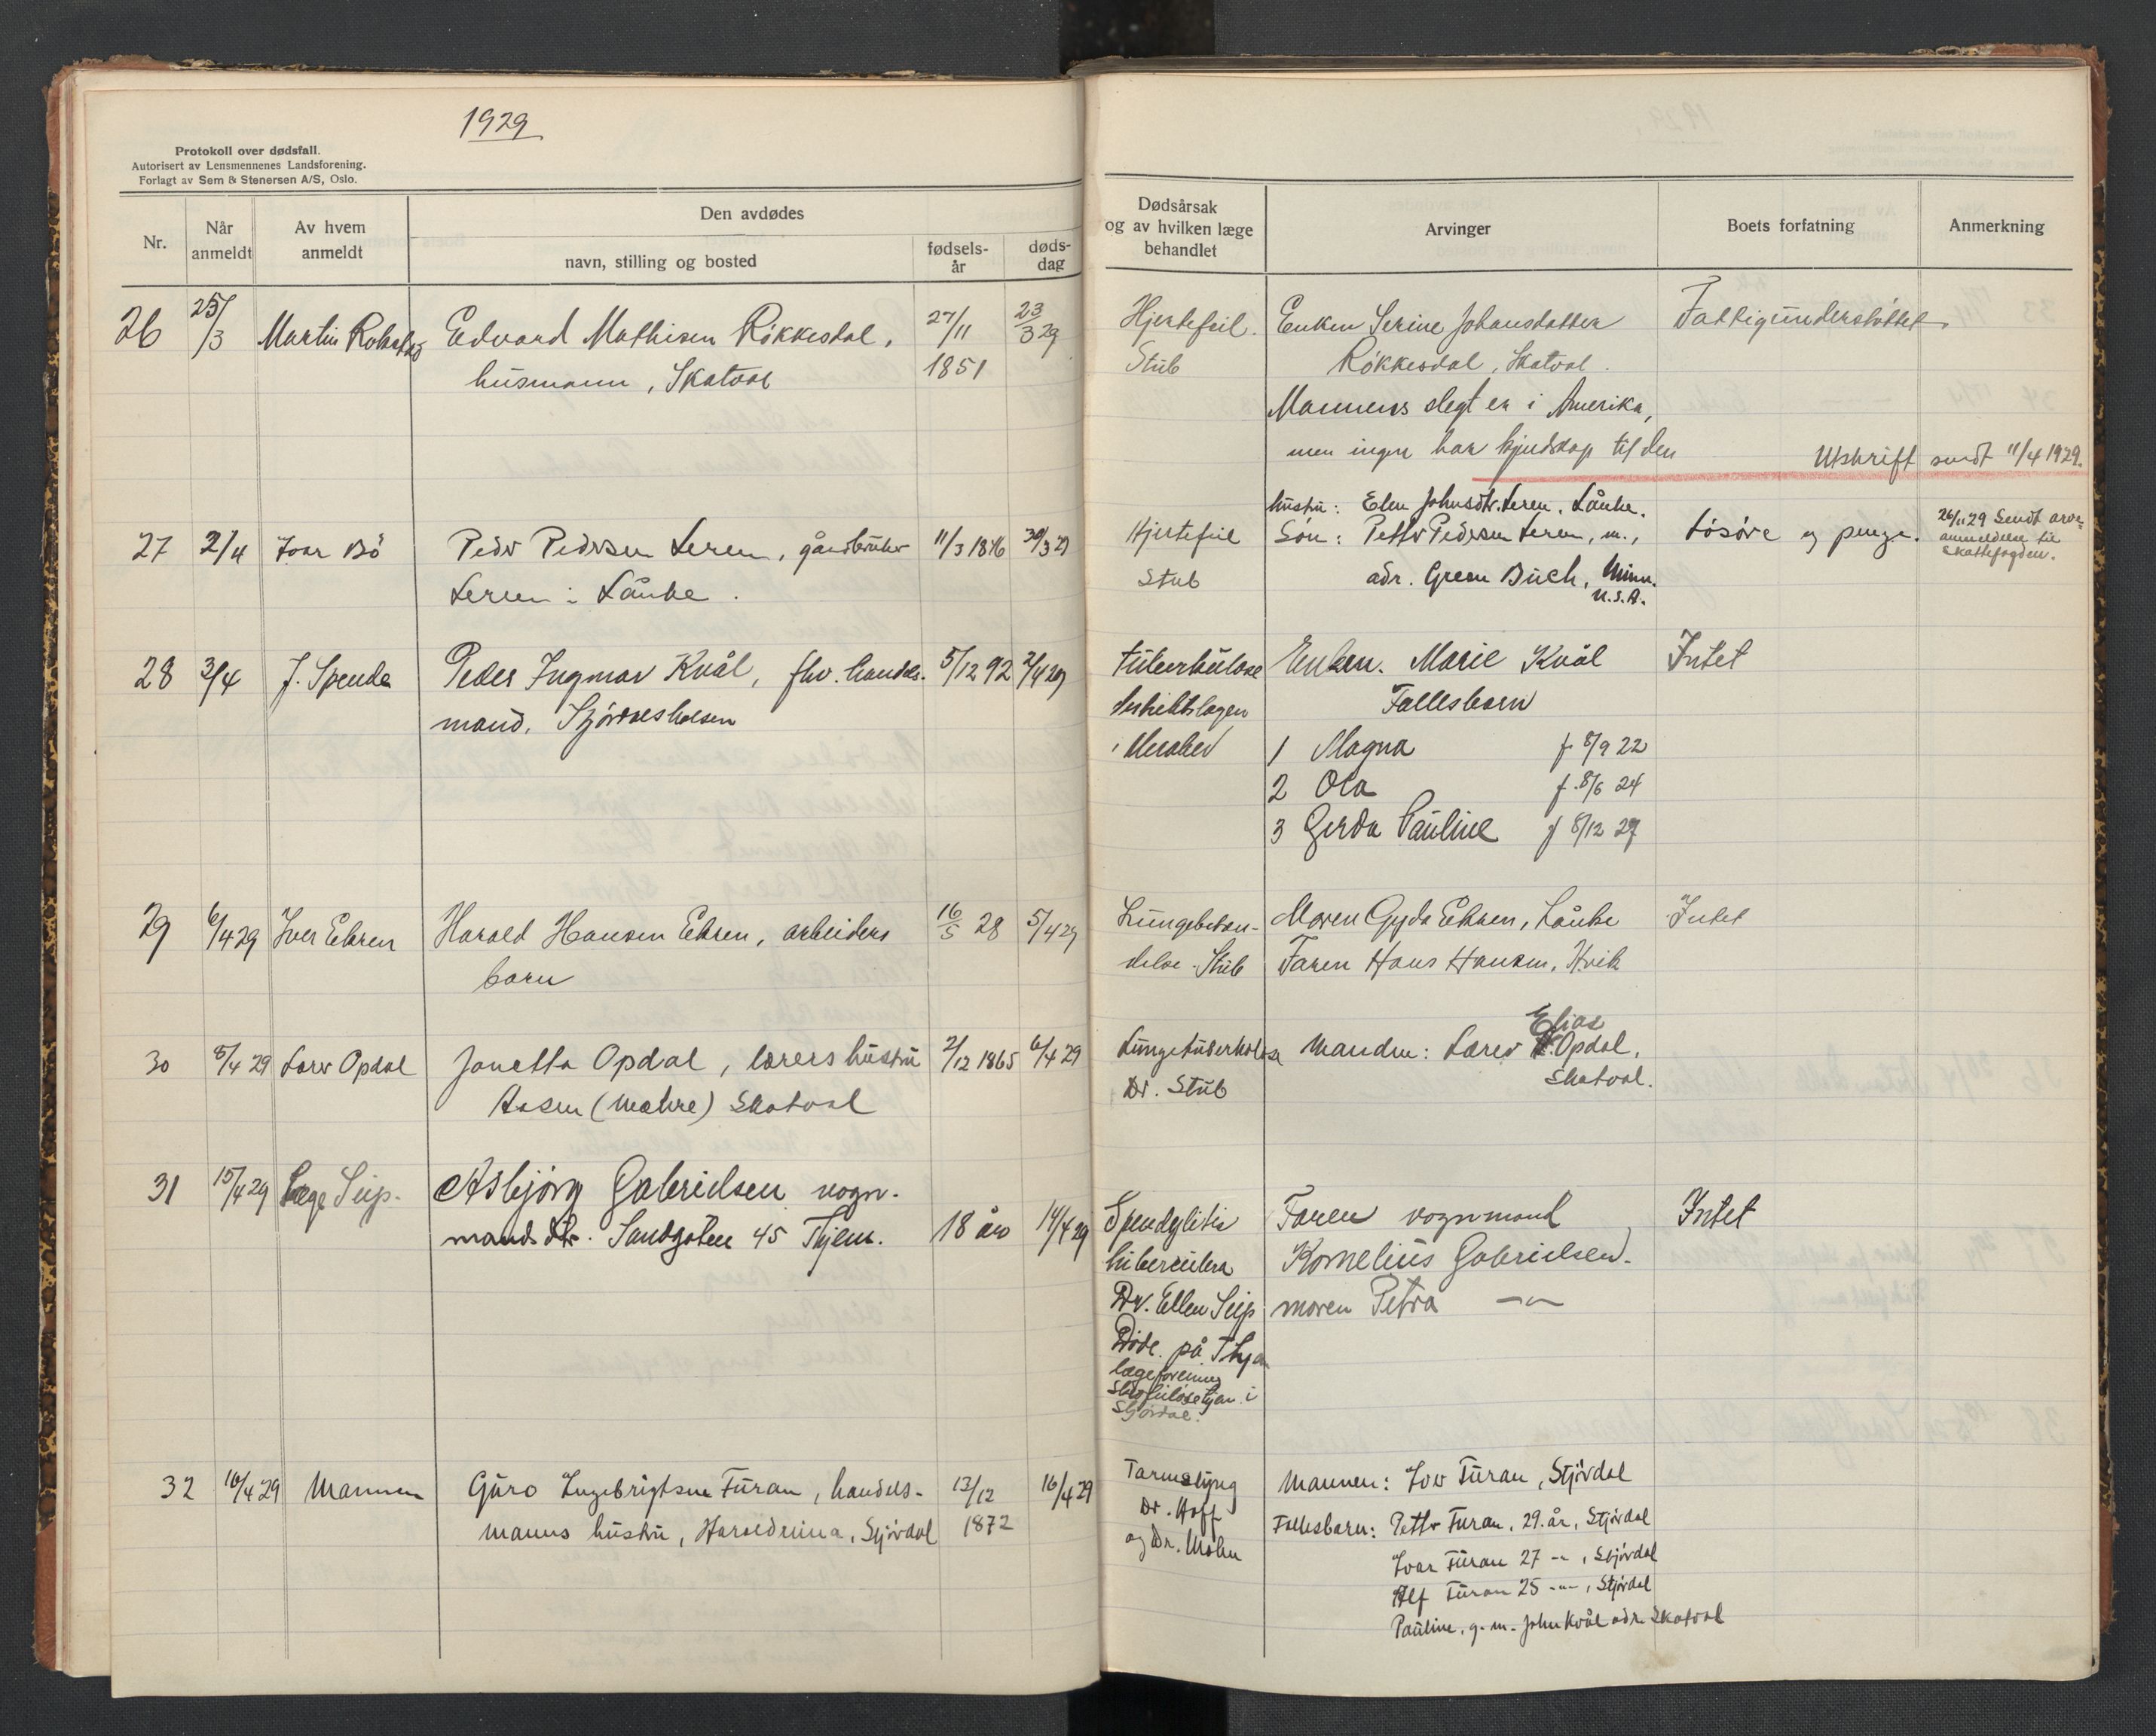 1929
Protokoll over dødsfall.
Autorisert av Lensmennenes Landsforening.
Forlagt av Sem & Stenersen A/S, Oslo.
Nr.
Når anmeldt
Av hvem anmeldt
Den avdødes
navn, stilling og bosted
fødsels-år
døds-dag
Dødsårsak og av hvilken læge behandlet
Arvinger
Boets forfatning
Anmerkning
26 25/3 Martin Edvard Mathisen Røkkesdal, 27/11 23/3 29
husmann, Skatval 1851
Hjertefeil. Enken Serine Johansdatter Fattigunderstøttet
Stub Røkkesdal, Skatval.
Mannens slegt er i Amerika,
men ingen har kjendskap til den
Utskrift sendt 11/4 1929.
27 2/4 Ivar Bö Peder Pedersen Leren, gårdbruker 11/3 1846 30/3 29
Leren i Lånke.
hustru: Elen Johnsdtr. Leren, Lånke.
Hjertefeil Søn: Petter Pedersen Leren, m., Løsøre og penge. 26/11 29 Sendt arve-
anmeldelse til
skattefogden.
Stub adr. Green Buch, Minn.
U.S.A.
28 3/4 J. Spende Peder Ingmar Kvål, fhv. handels- 5/12 92 2/4 29
mand, Stjørdalshalsen
tuberkulose Enken. Marie Kvål Intet
Fellesbarn
i Meraker 1 Magna f 8/9 22
2 Ola f. 8/6 24
3 Gerda Pauline f 8/12 27
29 6/4 29 Iver Ekren Harald Hansen Ekren, arbeiders 16/5 28 5/4 29
barn
Lungebeten- Moren Gyda Ekren, Lånke Intet
delse. Stub Faren Hans Hansen, Hvik
30 8/4 29 Lærer Opdal Janetta Opdal, lærers hustru 2/12 1865 6/4 29
Aasen (Mæhre) Skatval
Elias
Lungetuberkulose Manden: Lærer Opdal,
Dr. Stub Skatval.
31 15/4 29 Læge Seip. Asbjörg Gabrielsen vogn-
mands dtr. Sandgaten 45 Thjem. 18 år 14/4 29
Spondylitis Faren vognmand Intet
tuberculosa Kornelius Gabrielsen.
Dr. Ellen Seip moren Petra —"—
Döde på Thjem
lægeforenings
i
Stjørdal.
32 16/4 29 Mannen Guro Ingebrigtsen Furan, handels- 13/12 16/4 29
manns hustru, Haraldreina, Stjördal 1872
Tarmslyng Mannen: Iver Furan, Stjördal
Dr. Hoff
Fellesbarn: Petter Furan, 29. år, Stjördal
og Dr. Mohn
Ivar Furan 27 -"-, Stjördal
Alf Furan 25 -"-, Stjördal
Pauline, g. m. John Kvål adr. Skatval